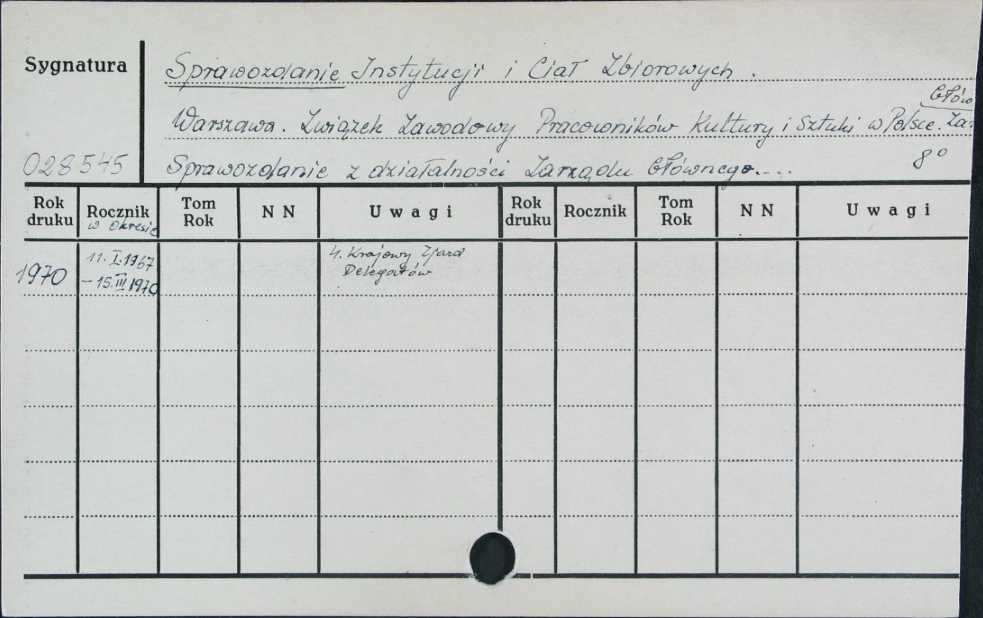 Sygnatura
Sprawozdanie Instytucji i Ciał Zbiorowych.
Główn
Warszawa. Związek Zawodowy Pracowników Kultury i Sztuki w Polsce. Za
028545
Sprawozdanie z działalności Zarządu Głównego....
8°
Rok druku Rocznik w okresie Tom Rok N N Uwagi Rok druku Rocznik Tom Rok N N Uwagi
1970 11.I.1967 4. Krajowy Zjazd
– 15.III 1970 Delegatów